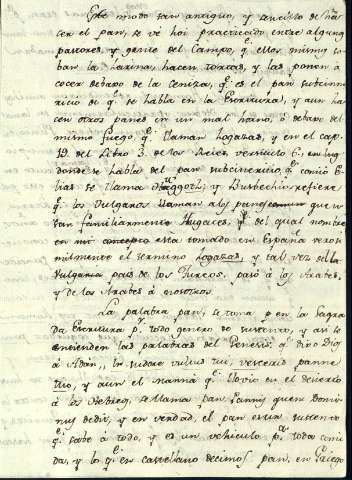 Este modo tan antiguo, y sencillo de ha-
cer el pan, se vé hoi practicado entre algunos
pastores, y gente del Campo, qe ellos mismos so-
ban la harina, hacen tortas, y las ponen á
cocer debajo de la ceniza, qe es el pan subcine-
ricio de qe se habla en la Escritura, y aun ha-
cen otros panes en un mal horno, ó debajo del
mismo fuego, qe llaman hogazas, y en el cap.
19. del Libro 3. de los Reies, versiculo 6.,
donde se habla del pan subcinericio, qe comió E-
lias se llama Huggoth, y Busbechio refiere
qe los Vulgaros llaman a los panes comun que u-
san familiarmente Hugaces, del qual nombre
en mi concepto está tomado en España veros-
milmente el termino hogazas, y tal vez de la
Vulgaria pasó de los Turcos, pasó á los Arabes,
y de los Arabes á nosotros.
La palabra pan, se toma en la Sagra-
da Escritura pr todo genero de sustento, y asi se
entienden las palabras del Genesis, qe dixo Dios
á Adán, in sudore vultus tui, vesceris panne
tuo, y aun el manná qe llovió en el decierto
á los Hebreos, se llama pan, pannis quem Domi-
nus dedit, y en verdad, el pan es un sustento
qe sabe á todo, y es un vehiculo pa toda comi-
da, y lo qe en castellano decimos pan, en Griego